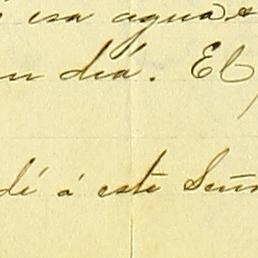 esa agua
un diá. El
dé á este Señ